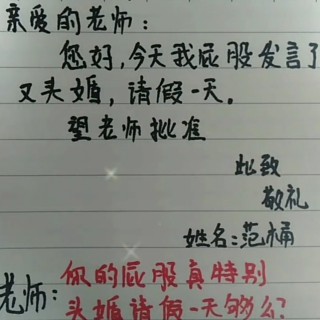 亲爱的老师:
您好,今天我屁股发言了
又头婚,请假一天。
望老师批准
此致
敬礼
姓名:范桶
老师:你的屁股真特别
头婚请假一天够么?